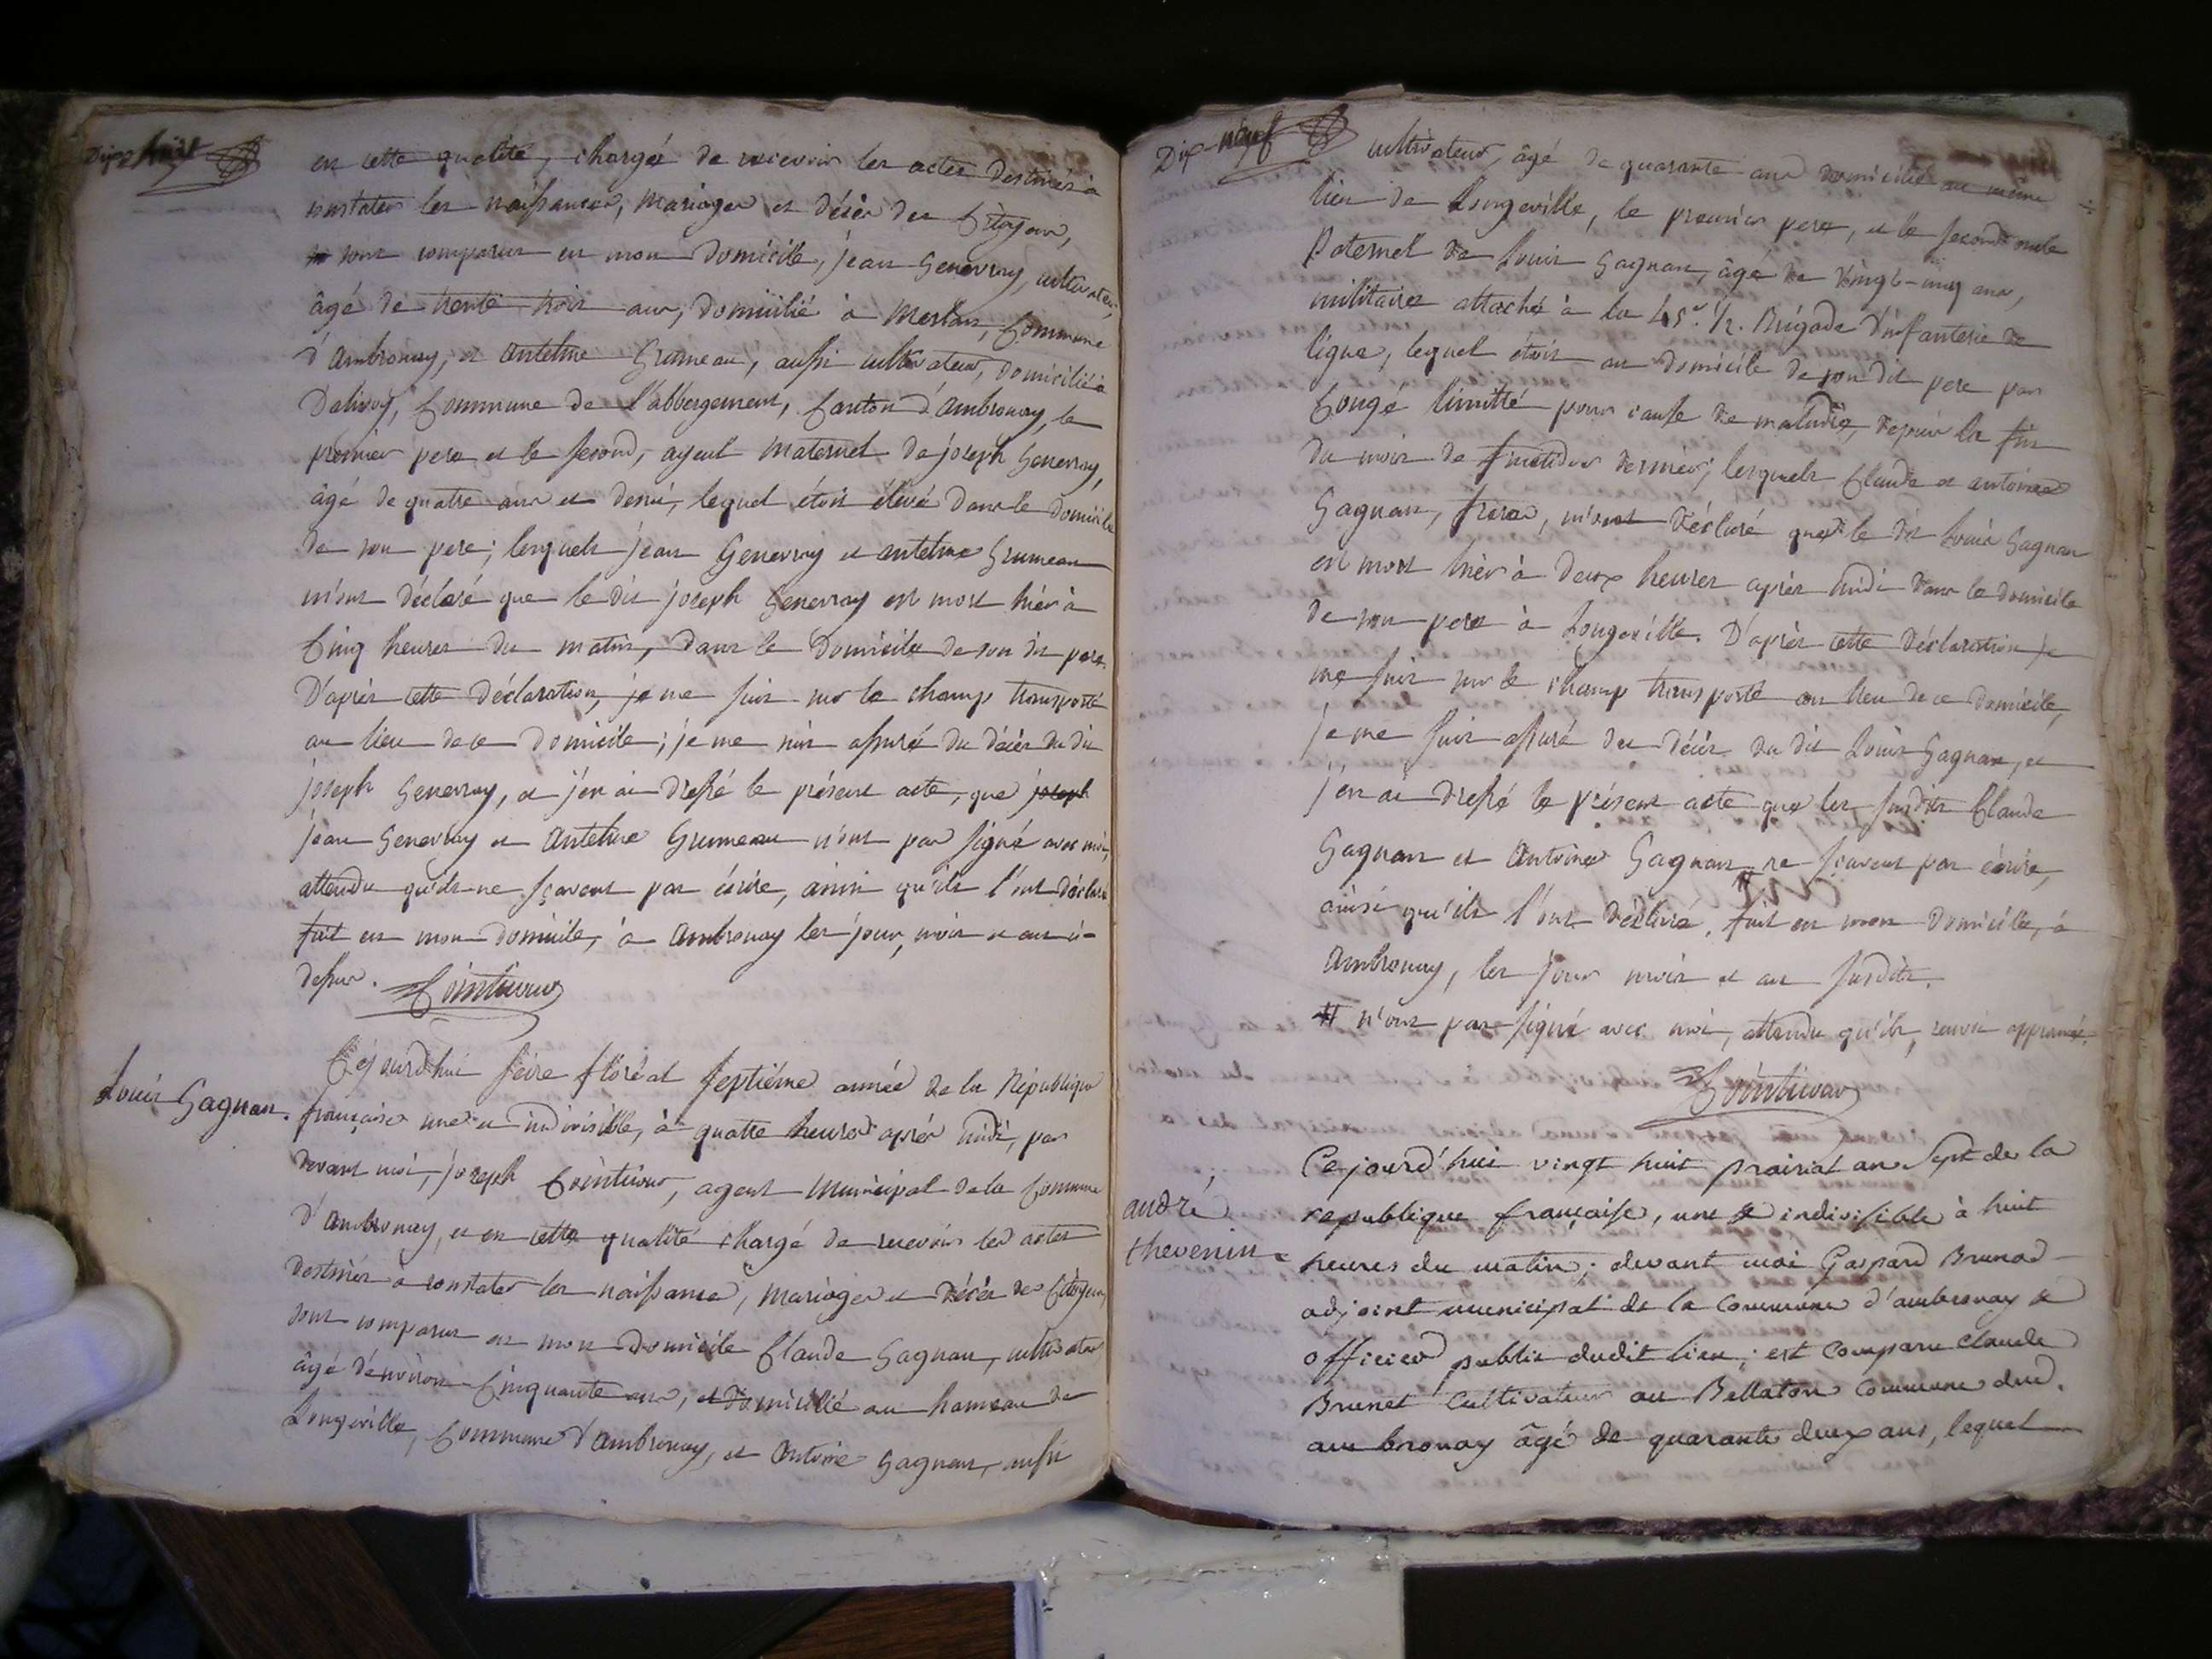 Dix huit
en cette qualité, chargé de recevoir les actes destinés à
constater les naissances, mariages et décès des Citoyens,
sont comparus en mon domicile, jean Genevray, cultivateur,
âgé de trente trois ans, domicilié à Merlan, Commune
d'Ambronay, et Antelme Grumeau, aussi cultivateur, domicilié à
Dalivoy, Commune de l'abbergement, Canton d'Ambronay, le
premier pere et le second, ayeul maternel de joseph Genevray,
âgé de quatre ans et demi, lequel étoit élevé dans le domicile
de son pere; lesquels jean Genevray et antelme Grumeau
m'ont déclaré que le dit joseph Genevray est mort hier à
Cinq heures du matin, dans le domicile de son dit pere.
D'après cette déclaration, je me suis sur le champ transporté
au lieu de ce domicile; je me suis assuré du décès du dit
joseph Genevray, et j'en ai dressé le présent acte, que joseph
jean Genevray et Antelme Grumeau n'ont pas signé avec moi,
attendu qu'ils ne sçavent pas écrire, ainsi qu'ils l'ont déclaré
fait en mon domicile, à Ambronay les jour, mois et an ci-
dessus. Cointicour
Louis Gagnan.
Cejourd'hui seize floréal septième année de la République
française une et indivisible, à quatre heures après midi, par
devant moi, joseph Cointicour, agent municipal de la Commune
d'Ambronay, et en cette qualité chargé de recevoir les actes
destinés à constater les naissances, mariages et décès des Citoyens
sont comparus en mon domicile Claude Gagnan, cultivateur
âgé d'environ Cinquante ans, et domicilié au hameau de
Longeville, Commune d'Ambronay, et Antoine Gagnan, aussi
Dix-neuf
cultivateur, âgé de quarante ans domicilié au même
lieu de Longeville, le premier pere, et le second oncle
Paternel de Louis Gagnan, âgé de vingt-cinq ans,
militaire attaché à la 45e. 1/2. Brigade d'infanterie de
ligne, lequel étoit au domicile de son dit pere par
Congé limitté pour cause de maladie, depuis la fin
du mois de fructidor dernier; lesquels Claude et antoine
Gagnan, freres, m'ont déclaré que le dit Louis Gagnan
est mort hier à deux heures après midi dans le domicile
de son pere à Longeville. D'après cette déclaration je
me suis sur le champ transporté au lieu de ce domicile,
je me suis assuré du décès du dit Louis Gagnan, et
j'en ai dressé le présent acte que les susdits Claude
Gagnan et Antoine Gagnan # ne sçavent pas écrire,
ainsi qu'ils l'ont déclaré, fait en mon domicile, à
Ambronay, les jour mois et an susdits.
# n'ont pas signé avec moi, attendu qu'ils, renvoi approuvé.
Cointicour
andré
thevenin
Cejourd'hui vingt huit prairial an sept de la
republique française, une & indivisible à huit
heures du matin; devant moi Gaspard Brunod
adjoint municipal de la commune d'ambronay &
officier public dudit lieu; est comparu claude
Brunet Cultivateur au Bellaton commune dud.
ambronay âgé de quarante deux ans, lequel